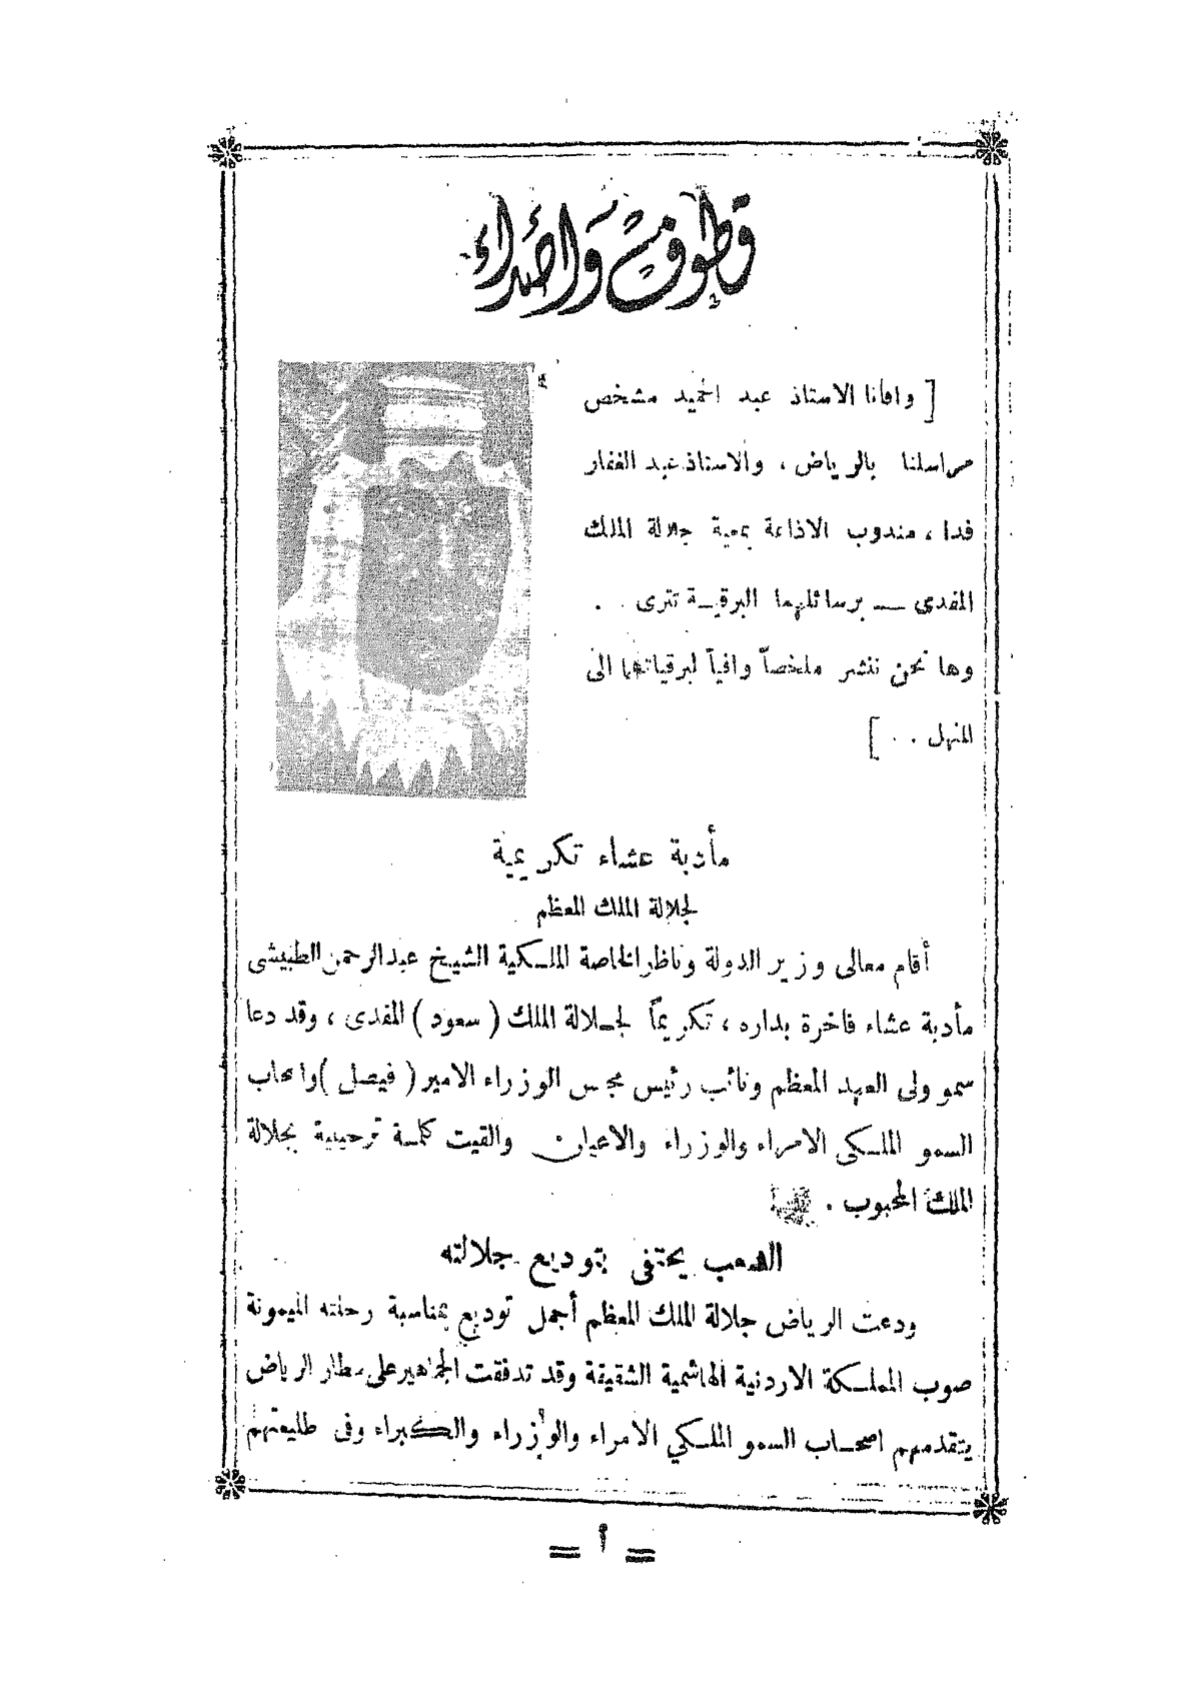 قطوف وأصداء
[ وافانا الاستاذ عبد الحميد مشخص
مراسلنا بالرياض ، والاستاذ عبد الغفار
فدا ، مندوب الاذاعة بمعية جلالة الملك
المفدى ــ برسائلهما البرقيـة تترى . .
وها نحن ننشر ملخصاً وافياً لبرقياتهما الى
المنهل . . ]
مأدبة عشاء تكريمية
لجلالة الملك المعظم
أقام معالى وزير الدولة وناظر الخاصة الملـكية الشيخ عبدالرحمن الطبيشى
مأدبة عشاء فاخرة بداره ، تكريماً لجـلالة الملك ( سعود ) المفدى ، وقد دعا
سمو ولى العهد المعظم ونائب رئيس مجلس الوزراء الامير ( فيصل ) واصحاب
السمو الملـكى الامراء والوزراء والاعيان والقيت كلمـة ترحيبية بجلالة
الملك المحبوب .
الشعب يحتفى بتوديع جلالته
ودعت الرياض جلالة الملك المعظم أجمل توديع بمناسبة رحلته الميمونة
صوب المملـكة الاردنية الهاشمية الشقيقة وقد تدفقت الجماهير على مطار الرياض
يتقدمهم اصحـاب السمو الملـكي الامراء والوزراء والكبراء وفى طليعتهم
= أ =